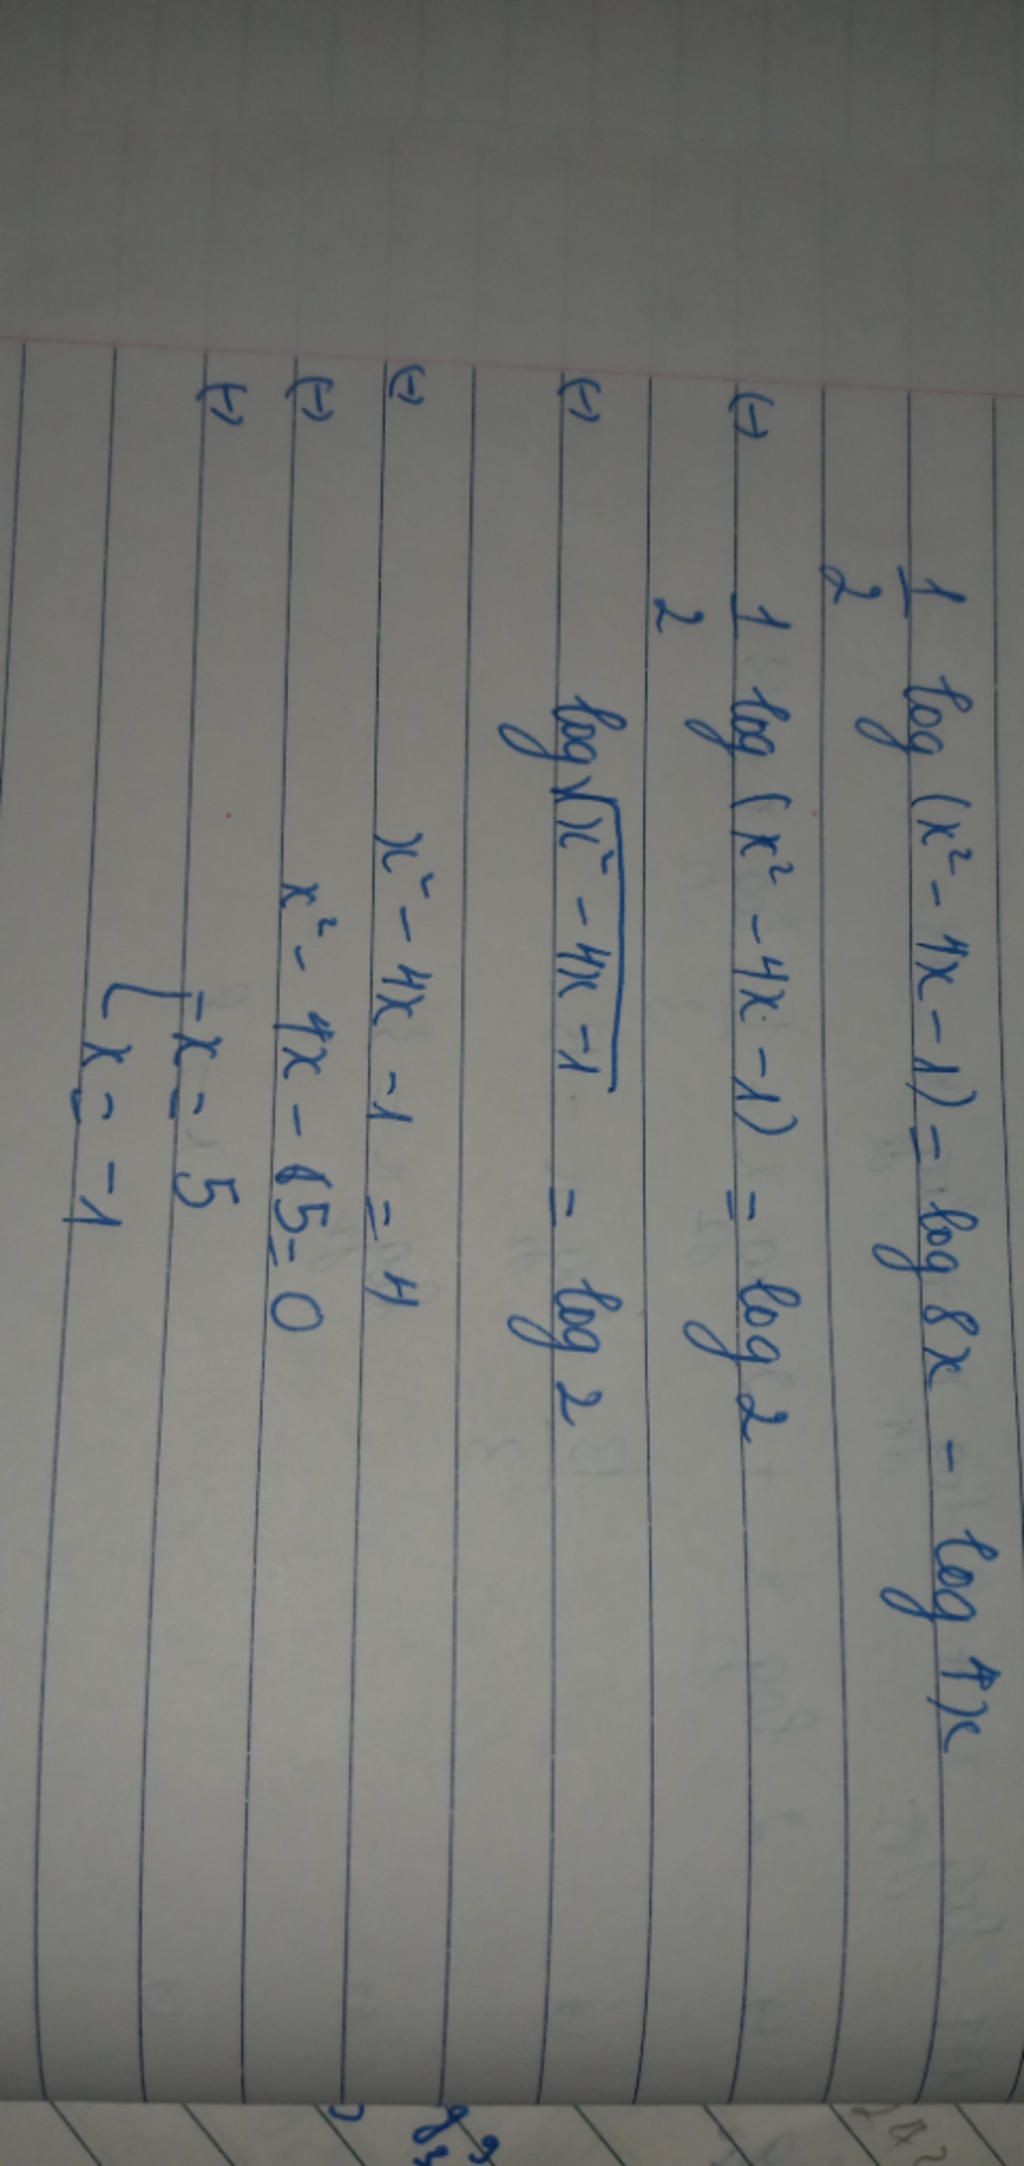 1/2 log (x² - 4x - 1) = log 8x - log 4x
(-) 1/2 log (x² - 4x - 1) = log 2
(-) log √(x² - 4x - 1) = log 2
(-) x² - 4x - 1 = 4
(-) x² - 4x - 5 = 0
(-) [ x = 5
x = -1